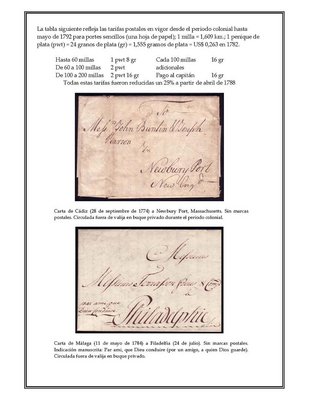 La tabla siguiente refleja las tarifas postales en vigor desde el periodo colonial hasta
mayo de 1792 para portes sencillos (una hoja de papel); 1 milla = 1,609 km.; 1 penique de
plata (pwt) = 24 granos de plata (gr) = 1,555 gramos de plata = US$ 0,263 en 1782.
Hasta 60 millas 1 pwt 8 gr Cada 100 millas 16 gr
De 60 a 100 millas 2 pwt adicionales
De 100 a 200 millas 2 pwt 16 gr Pago al capitán 16 gr
Todas estas tarifas fueron reducidas un 25% a partir de abril de 1788.
Mess. John Buntin & Joseph
In
Newbury Port
New
Carta de Cádiz (28 de septiembre de 1774) a Newbury Port, Massachusetts. Sin marcas
postales. Circulada fuera de valija en buque privado durante el periodo colonial.
Messieurs
Messieurs
par ami que
Dieu
Philadelphie
Carta de Málaga (11 de mayo de 1784) a Filadelfia (24 de julio). Sin marcas postales.
Indicación manuscrita: Par ami, que Dieu conduire (por un amigo, a quien Dios guarde).
Circulada fuera de valija en buque privado.